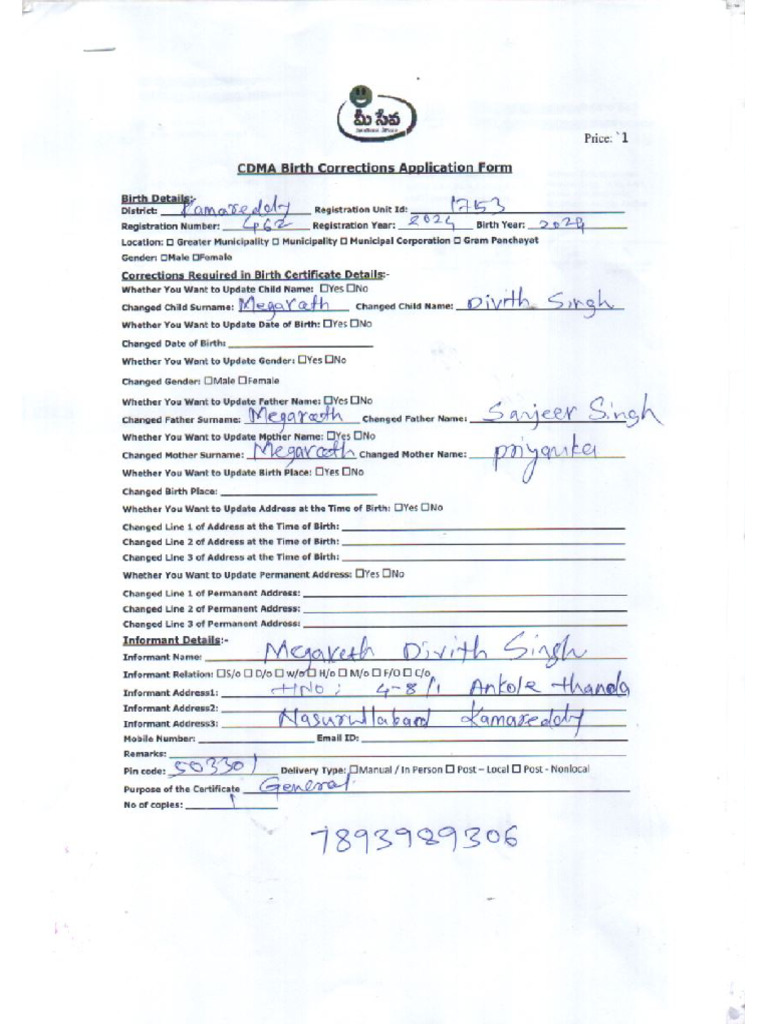 మీ సేవ
Price: `1
CDMA Birth Corrections Application Form
Birth Details:-
District: Kamareddy Registration Unit Id: 1753
Registration Number: 462 Registration Year: 2024 Birth Year: 2024
Location: ☐ Greater Municipality ☐ Municipality ☐ Municipal Corporation ☐ Gram Panchayat
Gender: ☐Male ☐Female
Corrections Required in Birth Certificate Details:-
Whether You Want to Update Child Name: ☐Yes ☐No
Changed Child Surname: Megavath Changed Child Name: Divith Singh
Whether You Want to Update Date of Birth: ☐Yes ☐No
Changed Date of Birth:
Whether You Want to Update Gender: ☐Yes ☐No
Changed Gender: ☐Male ☐Female
Whether You Want to Update Father Name: ☐Yes ☐No
Changed Father Surname: Megavath Changed Father Name: Sanjeer Singh
Whether You Want to Update Mother Name: ☐Yes ☐No
Changed Mother Surname: Megavath Changed Mother Name: priyanka
Whether You Want to Update Birth Place: ☐Yes ☐No
Changed Birth Place:
Whether You Want to Update Address at the Time of Birth: ☐Yes ☐No
Changed Line 1 of Address at the Time of Birth:
Changed Line 2 of Address at the Time of Birth:
Changed Line 3 of Address at the Time of Birth:
Whether You Want to Update Permanent Address: ☐Yes ☐No
Changed Line 1 of Permanent Address:
Changed Line 2 of Permanent Address:
Changed Line 3 of Permanent Address:
Informant Details:-
Informant Name: Megavath Divith Singh
Informant Relation: ☐S/o ☐ D/o ☐ w/o ☐ H/o ☐ M/o ☐ F/O ☐ C/o
Informant Address1: HNO: 4-8/1 Ankole thanda
Informant Address2:
Informant Address3: Nasurullabad Kamareddy
Mobile Number: Email ID:
Remarks:
Pin code: 503301 Delivery Type: ☐Manual / In Person ☐ Post – Local ☐ Post - Nonlocal
Purpose of the Certificate General
No of copies: 1
7893989306